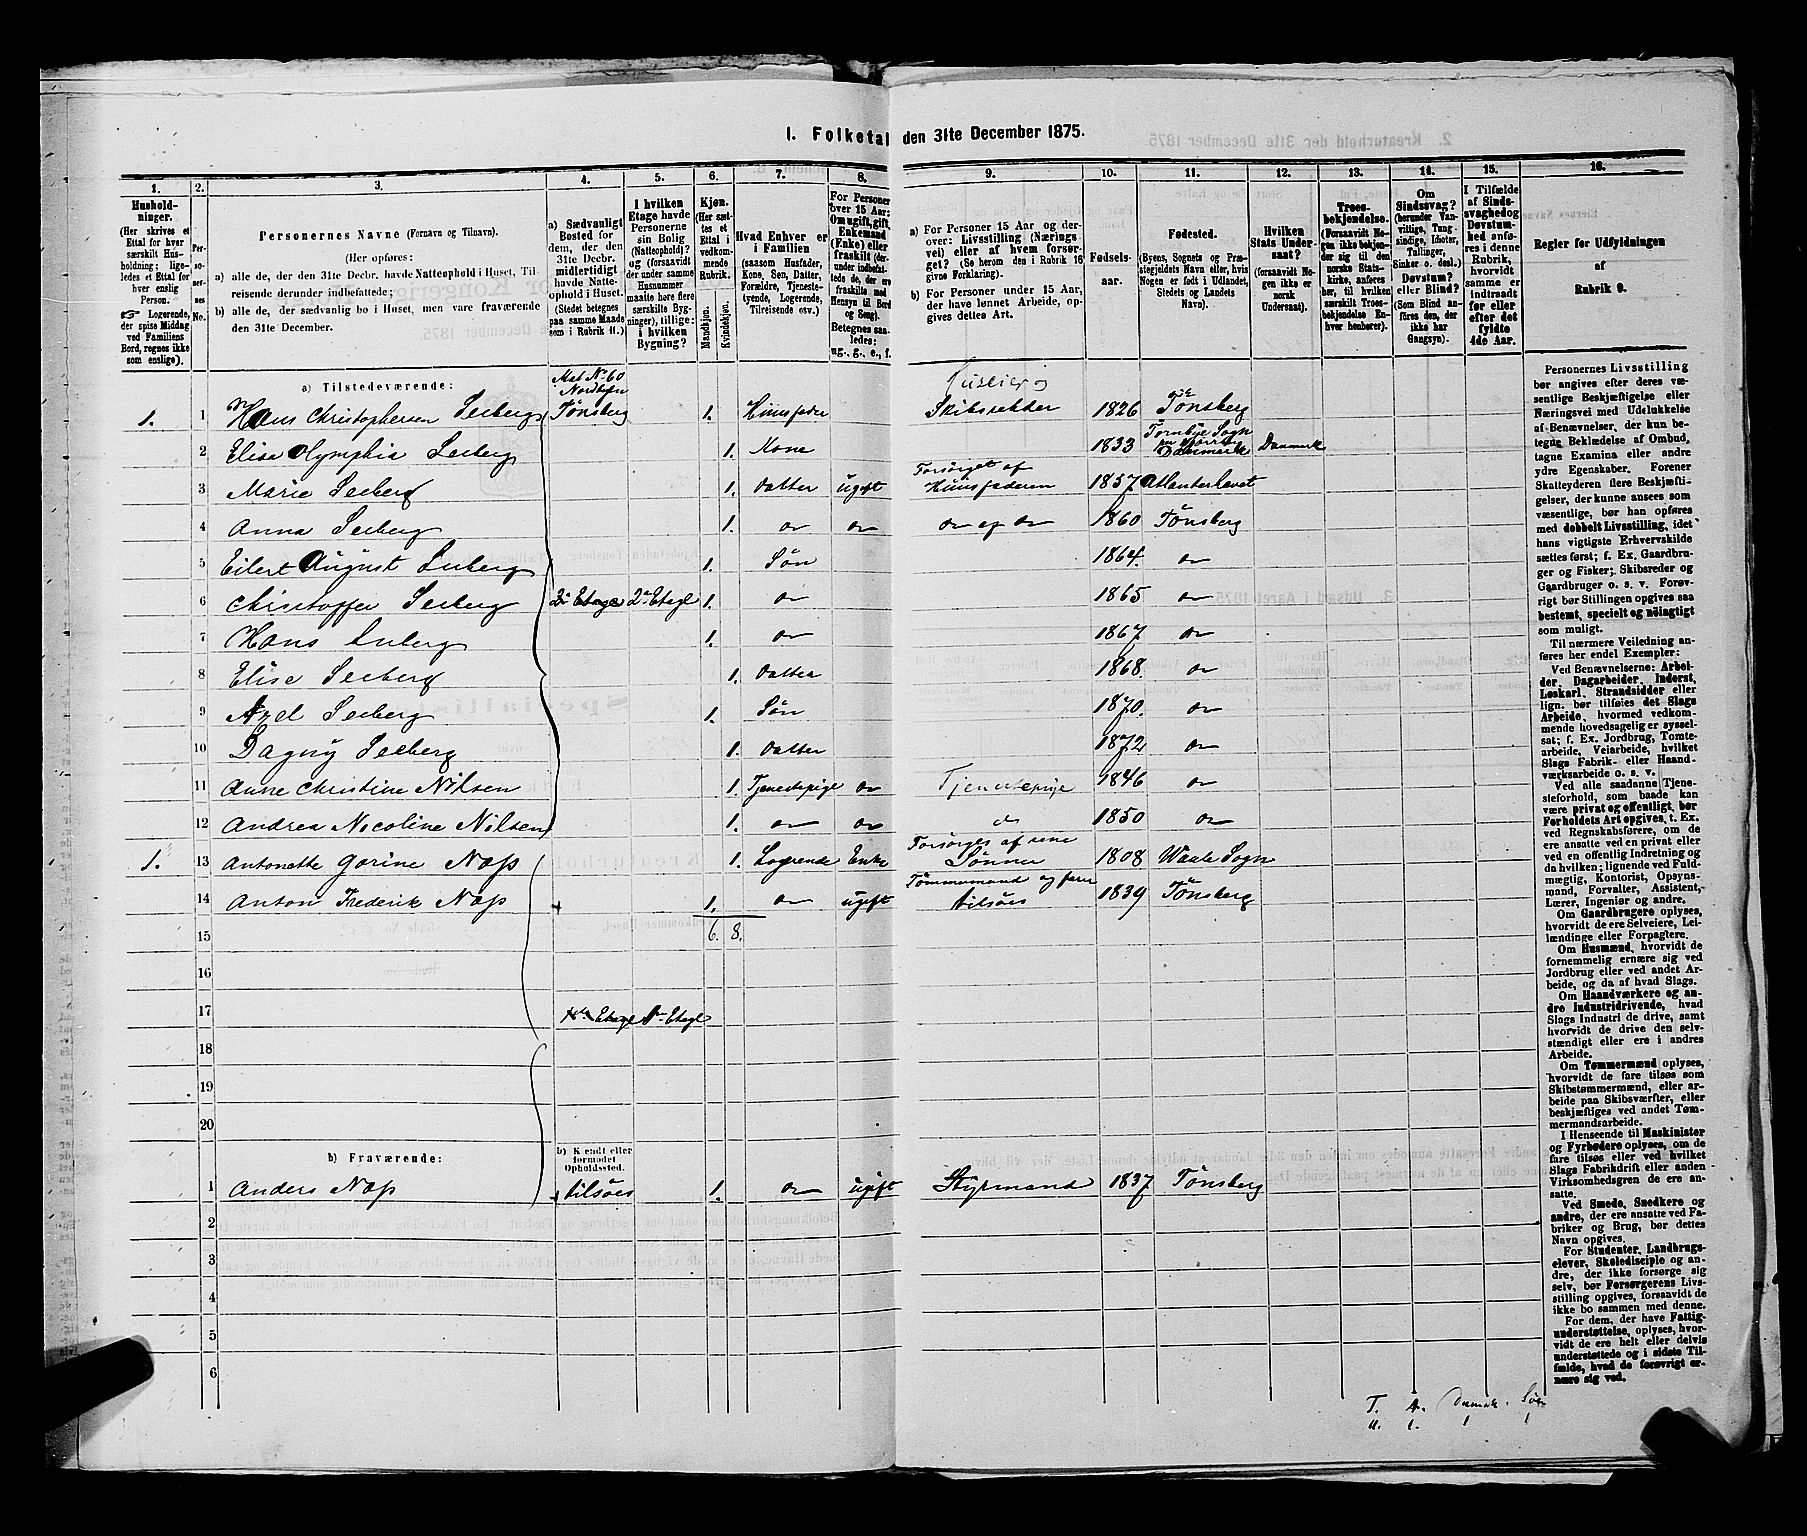 1. Folketal den 31te December 1875.
1.
2.
3.
4.
5.
6.
7.
8.
9.
10.
11.
12.
13.
14.
15.
16.
Hushold-
ninger.
(Her skrives et
Ettal for hver
særskilt Hus-
holdning; lige-
ledes et Ettal for
hver enslig
Person.
☞ Logerende,
der spise Middag
ved Familiens
Bord, regnes ikke
som enslige).
Per-
so-
ner-
nes
No.
Personernes Navne (Fornavn og Tilnavn).
(Her opføres:
a) alle de, der den 31te Decbr. havde Natteophold i Huset, Til-
reisende derunder indbefattede;
b) alle de, der sædvanlig bo i Huset, men vare fraværende
den 31te Decbr.
a) Sædvanligt
Bosted for
dem, der den
31te Decbr.
midlertidigt
havde Natte-
ophold i Huset.
(Stedet betegnes
paa samme Maade
som i Rubrik 11.)
I hvilken
Etage havde
Personerne
sin Bolig
(Natteophold)?
(forsaavidt
der under samme
Husnummer
maatte høre flere
særskilte Byg-
ninger), tillige:
i hvilken
Bygning?
Kjøn.
(Her sæt-
tes et
Ettal i
vedkom-
mende
Rubrik.
Mandkjøn.
Kvindekjøn.
Hvad Enhver er
i Familien
(saasom Husfader,
Kone, Søn, Datter,
Forældre, Tjeneste-
tyende, Logerende,
Tilreisende osv.)
For Personer
over 15 Aar:
Om ugift, gift,
Enkemand
(Enke) eller
fraskilt (der-
under indbefat-
tede de, der ere
fraskilte med
Hensyn til Bord
og Seng).
Betegnes saa-
ledes:
ug., g., e., f.
a) For Personer 15 Aar og der-
over: Livsstilling (Nærings
vei) eller af hvem forsør-
get? (Se herom den i Rubrik 16
givne Forklaring).
b) For Personer under 15 Aar,
der have lønnet Arbeide, op-
gives dettes Art.
Fødsels-
aar.
Fødested.
(Byens, Sognets og Præ-
stegjeldets Navn eller, hvis
Nogen er født i Udlandet,
Stedets og Landets
Navn).
Hvilken
Stats Under-
saat?
(forsaavidt No-
gen ikke er
norsk
Undersaat).
Troes-
bekjendelse.
(Forsaavidt No-
gen ikke beken-
der sig til den
norske Stats-
kirke, anføres
her, til hvilken
særskilt Troes-
bekjendelse En-
hver henhører).
Om
Sindssvag?
(herunder Van-
vittige, Tung-
sindige, Idioter,
Tullinger,
Sinker o. desl.)
Døvstum?
eller Blind?
(Som Blind an-
føres den, der
ikke har
Gangsyn).
I Tilfælde
af Sinds-
svaghed og
Døvstum-
hed anfø-
res i denne
Rubrik,
hvorvidt
samme er
indtraadt
før eller
efter det
fyldte
4de Aar.
Regler for Udfyldningen
af
Rubrik 9.
a) Tilstedeværende:
Mat No 60
Nordbyen
1. 1 Hans Christophersen Seeberg Tønsberg 1. Huusfader Skibsreder 1826 Tønsberg
2 Elisa Olymphia Seeberg 1. Kone 1833 Tornbye Sogn Danmark Danmark
3 Marie Seeberg 1. Datter ugift Forsørget af Huusfaderen 1857 Atlanterhavet
4 Anna Seeberg 1. do do do af do 1860 Tønsberg
5 Eilert August Seeberg 1. Søn 1864. do
6 Christoffer Seeberg 2 Etage 2 Etage 1. do 1865 do
7 Hans Seeberg 1. do 1867 do
8 Elise Seeberg 1. Datter 1868. do
9 Axel Seeberg 1. Søn 1870. do
10 Dagny Seeberg 1. Datter 1872 do
11 Anne Christine Nilsen 1. Tjenestepige do Tjenestepige 1846 do
12 Andrea Nicoline Nilsen 1. do do do 1850 do
1. 13 Antonette Gorine Næss 1. Logerende Enke Forsørges af sine Sønner 1808 Waale Sogn
14 Anton Frederik Næss 1. do ugift Tømmermand og farer tilsøes 1839 Tønsberg
15 6. 8.
16
17 Etage 1 Etage
18
19
20
b) Fraværende:
b) Kjendt eller
formodet
Opholdssted.
1 Anders Næss tilsøes 1. do ugift Styrmand 1837 Tønsberg
2
3
4
5
6
Personernes Livsstilling
bør angives efter deres væ-
sentlige Beskjæftigelse eller
Næringsvei med Udelukkelse
af Benævnelser, der kun be-
tegne Beklædelse af Ombud,
tagne Examina eller andre
ydre Egenskaber. Forener
Skatteyderen flere Beskjæfti-
gelser, der kunne ansees som
væsentlige, bør han opføres
med dobbelt Livsstilling, idet
hans vigtigste Erhvervskilde
sættes først; f. Ex. Gaardbru-
ger og Fisker; Skibsreder og
Gaardbruger o. s. v. Forøv-
rigt bør Stillingen opgives saa
bestemt, specielt og nøiagtigt
som muligt.
Til nærmere Veiledning an-
føres her endel Exempler:
Ved Benævnelserne: Arbei-
der, Dagarbeider, Inderst,
Løskarl, Strandsidder eller
lign. bør tilføies det Slags
Arbeide, hvormed vedkom-
mende hovedsagelig er syssel-
sat; f. Ex. Jordbrug, Tomte-
arbeide, Veiarbeide, hvilket
Slags Fabrik- eller Haand-
værksarbeide o. s. v.
Ved alle saadanne Tjene-
steforhold, som baade kan
være privat og offentligt, bør
Forholdets Art opgives, t. Ex.
ved Regnskabsførere, om de
ere ansatte ved en privat eller
ved en offentlig Indretning og
da hvilken; lignende ved Fuld-
mægtig, Kontorist, Opsyns-
mand, Forvalter, Assistent,
Lærer, Ingeniør og andre.
Om Gaardbrugere oplyses,
hvorvidt de ere Selveiere, Lei-
lændinge eller Forpagtere.
Om Husmænd, hvorvidt de
fornemmelig ernære sig ved
Jordbrug eller ved andet Ar-
beide, og da af hvad Slags.
Om Haandværkere og an-
dre Industridrivende, hvad
Slags Industri de drive, samt
hvorvidt de drive den selv-
stændigt eller ere i andres
Arbeide.
Om Tømmermænd oplyses,
hvorvidt de fare tilsøs som
Skibstømmermænd, eller ar-
beide paa Skibsværfter, eller
beskjæftiges ved andet Tøm-
mermandsarbeide.
I Henseende til Maskinister
og Fyrbødere oplyses, om de
fare tilsøs eller ved hvilket
Slags Fabrikdrift eller anden
Virksomhedsgren de ere an-
satte.
Ved Smede, Snedkere og
andre, der ere ansatte ved Fa-
briker og Brug, bør dettes
Navn opgives.
For Studenter, Landbrugs-
elever, Skoledisciple og an-
dre, der ikke forsørge sig
selv, bør Forsørgerens Livs-
stilling opgives, forsaavidt de
ikke bo sammen med denne.
For dem, der have Fattig-
understøttelse, oplyses, hvor-
vidt de ere helt eller delvis
understøttede og i sidste Til-
fælde, hvad de forøvrigt er-
nære sig ved.